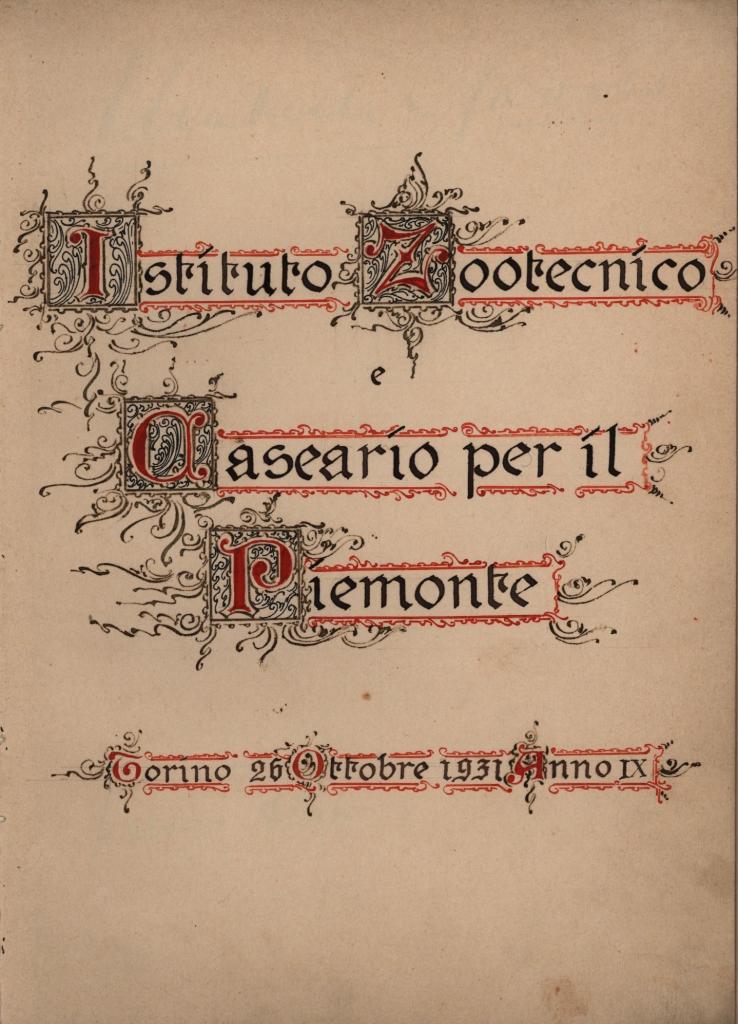 Istituto Zootecnico
e
Caseario per il
Piemonte
Torino 26 Ottobre 1931 Anno IX